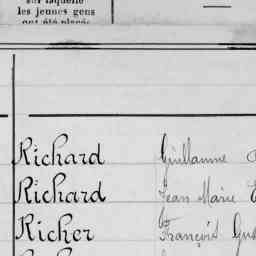 sur laquelle
les jeunes gens
ont été placés
Richard Guillaume
Richard Jean Marie
Richer François